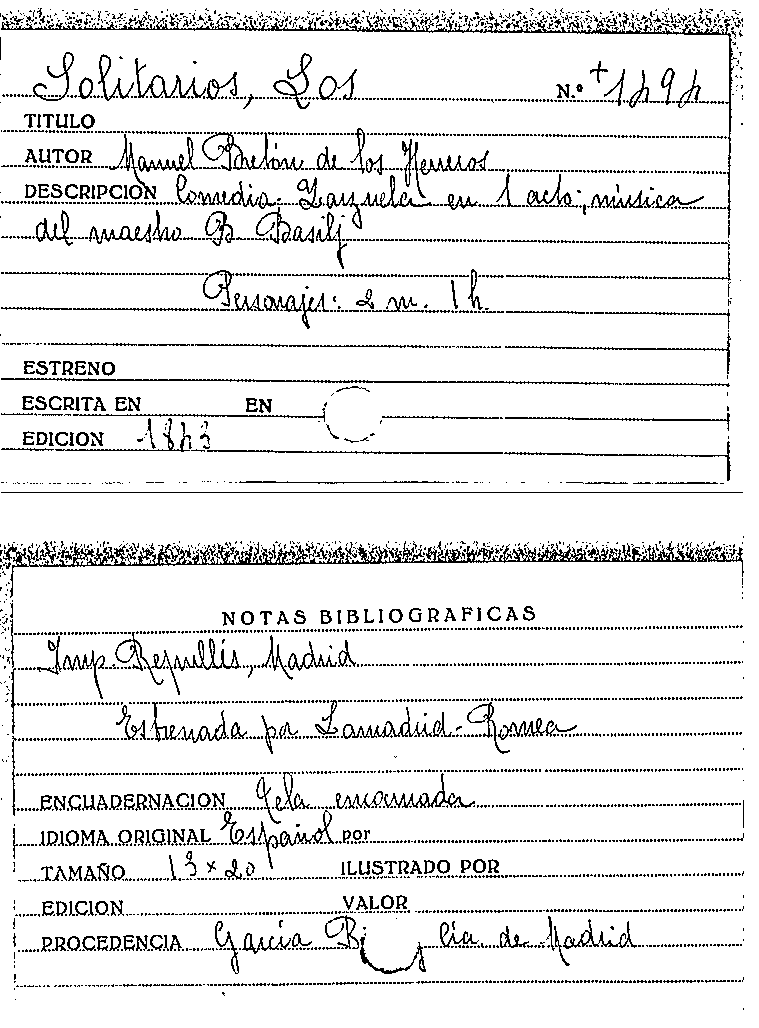 Solitarios, Los N.º +1494
TITULO
AUTOR Manuel Bretón de los Herreros
DESCRIPCION Comedia-Zarzuela en 1 acto; música
del maestro B Basilj
Personajes: 2 m. 1 h.
ESTRENO
ESCRITA EN EN
EDICION 1843
NOTAS BIBLIOGRAFICAS
Imp. Repullés, Madrid
Estrenada por Lamadrid-Romea
ENCUADERNACION Tela encarnada
IDIOMA ORIGINAL Español por
TAMAÑO 13 x 20 ILUSTRADO POR
EDICION VALOR
PROCEDENCIA García cía de Madrid